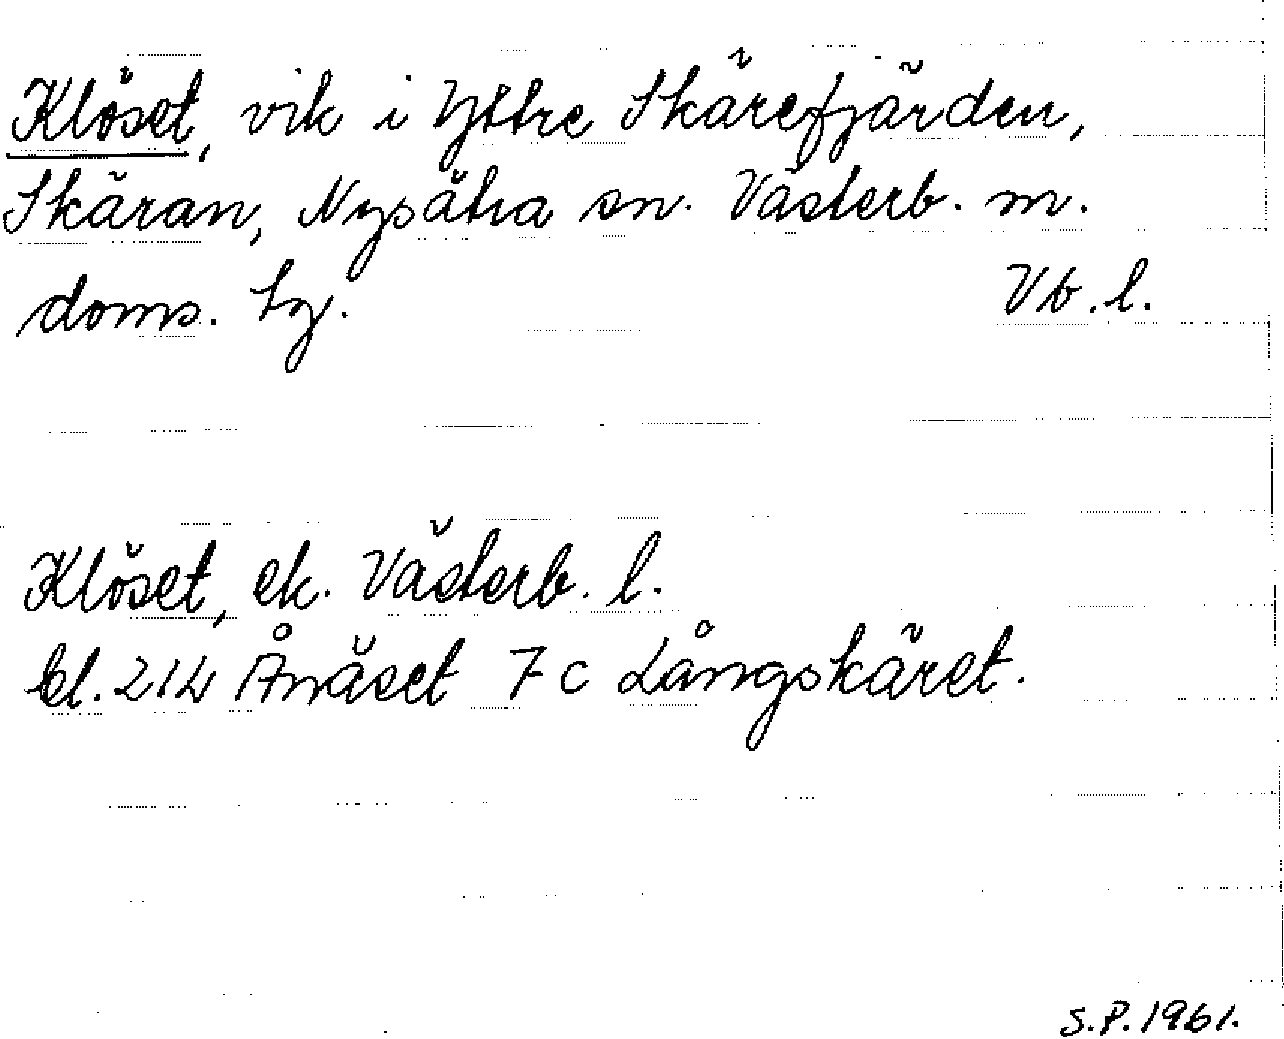 Klöset, vik i Yttre Skärefjärden,
Skäran, Nysätra sn. Västerb. m.
doms. tg. Vb. l.
Klöset, ek. Västerb. l.
bl. 214 Ånäset 7 c Långskäret.
S.P. 1961.